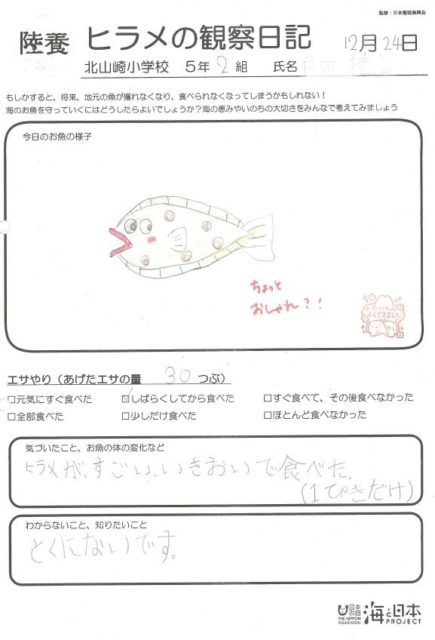 監修：日本種苗振興会
陸養 ヒラメの観察日記 12月24日
北山崎小学校 5年2組 氏名
もしかすると、将来、地元の魚が獲れなくなり、食べられなくなってしまうかもしれない！
海のお魚を守っていくにはどうしたらよいでしょうか？海の恵みやいのちの大切さをみんなで考えてみましょう
今日のお魚の様子
ちょっと
おしゃれ？！
エサやり（あげたエサの量 30 つぶ）
□元気にすぐ食べた ☑しばらくしてから食べた □すぐ食べて、その後食べなかった
□全部食べた □少しだけ食べた □ほとんど食べなかった
気づいたこと、お魚の体の変化など
ヒラメが、すごい、いきおいで食べた。
(1ぴきだけ)
わからないこと、知りたいこと
とくにないです。
日本財団 THE NIPPON FOUNDATION 海と日本 PROJECT